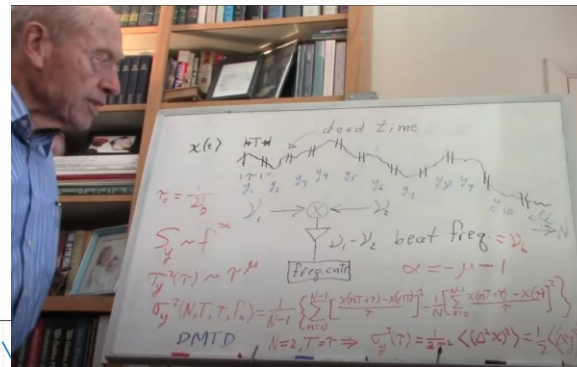 dead time
x(t) |←T→|
y₁ y₂ y₃ y₄ y₅ y₆ y₇ y₈ y₉ y₁₀
τ₀ = 1/ν_b
ν₁ → ⊗ ← ν₂
S_y ~ f^α
ν₁ - ν₂ beat freq = ν_b
freq. cntr
α = -μ - 1
σ_y²(τ) ~ τ^μ
σ_y²(N,T,τ,f_h) = 1/(N-1) { Σ_{n=0}^{N-1} [ (x(nT+τ) - x(nT))/τ ]² - 1/N [ Σ_{n=0}^{N-1} (x(nT+τ) - x(nT))/τ ]² }
DMTD N=2, T=τ ⇒ σ_y²(τ) = 1/(2τ²) ⟨(Δ²x)²⟩ = 1/2 ⟨(Δy)²